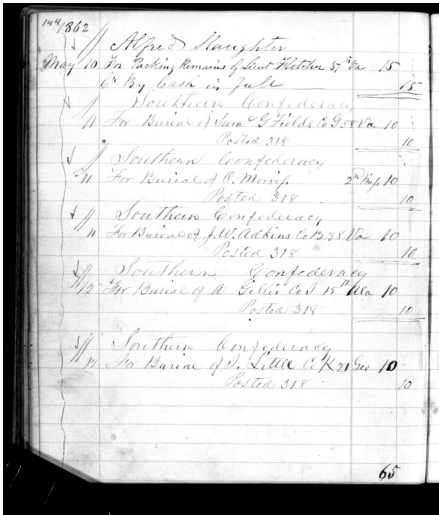 144
1862
Alfred Slaughter
May 10 For Packing Remains of Lieut Fletcher 57th Va 15
Cr By Cash in full 15
Southern Confederacy
11 For Burial of Saml G Fields Co G 58 Va 10
Posted 318 10
Southern Confederacy
11 For Burial of R. Morris 2nd Miss 10
Posted 318 10
Southern Confederacy
11 For Burial of J. W. Adkins Co B 38 Va 10
Posted 318 10
Southern Confederacy
12 For Burial of A Gillis Co I 15th Ala 10
Posted 318 10
Southern Confederacy
12 For Burial of S. Little Co K 21 Geo 10
Posted 318 10
65